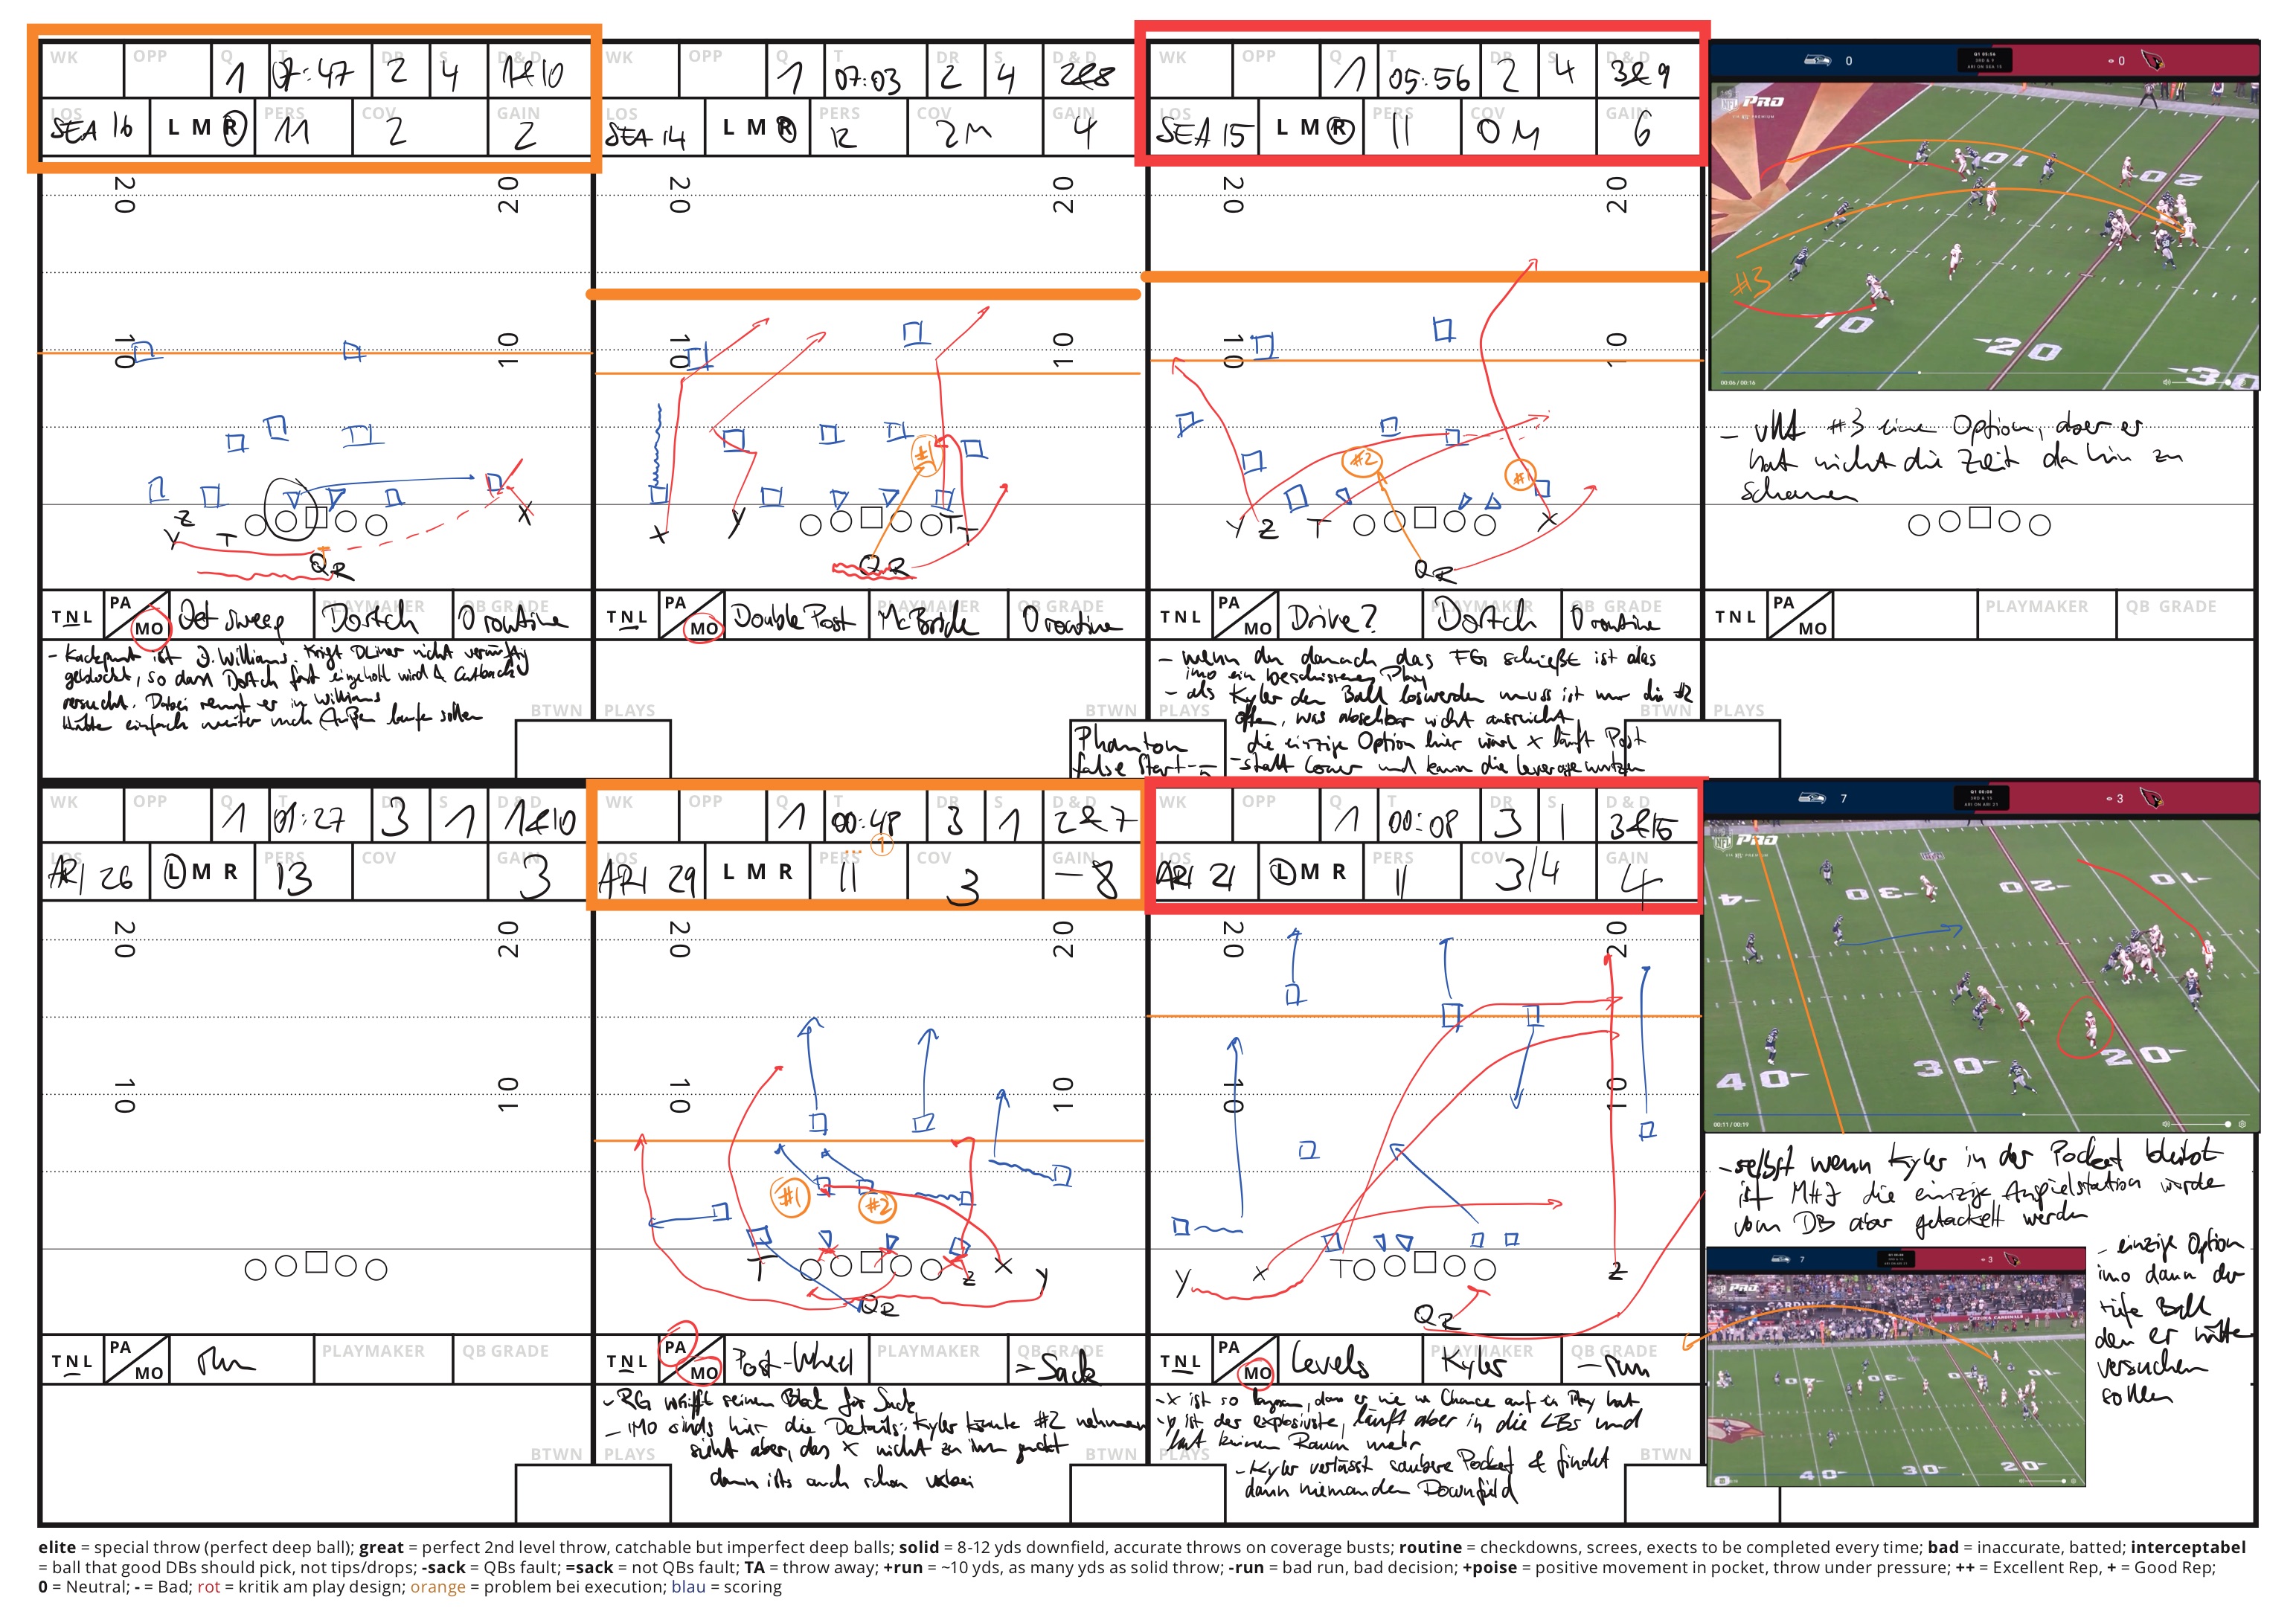 WK OPP Q 1 T 07:47 DR 2 S 4 D & D 1&10
LOS SEA 16 L M R PERS 11 COV 2 GAIN 2
20 20
10 10
Z
Y T X
Q R
TNL PA MO Jet sweep PLAYMAKER Dortch QB GRADE 0 routine
- Knackpunkt ist J. Williams. Kriegt DLiner nicht vernünftig
geblockt, so dass Dortch fast eingeholt wird & Cutback
versucht. Dabei rennt er in Williams
Hätte einfach weiter nach Außen laufen sollen
BTWN PLAYS
WK OPP Q 1 T 07:03 DR 2 S 4 D & D 2&8
LOS SEA 14 L M R PERS 12 COV 2M GAIN 4
20 20
10 10
#1
X Y T T
Q R
TNL PA MO Double Post PLAYMAKER McBride QB GRADE 0 routine
BTWN PLAYS
Phantom
false Start
WK OPP Q 1 T 05:56 DR 2 S 4 D & D 3&9
LOS SEA 15 L M R PERS 11 COV 0M GAIN 6
20 20
10 10
#2 #1
Y Z T X
Q R
TNL PA MO Drive? PLAYMAKER Dortch QB GRADE 0 routine
- wenn du danach das FG schießt ist das
imo ein beschissenes Play
- als Kyler den Ball loswerden muss ist nur die #2
offen, was absehbar nicht ausreicht
die einzige Option hier wäre X läuft Post
- statt Corner und kann die leverage nutzen
BTWN PLAYS
0 0
NFL PRO
10 20
#3
10 20 30
00:06 / 00:16
- vllt #3 eine Option, aber er
hat nicht die Zeit da hin zu
schauen
TNL PA MO PLAYMAKER QB GRADE
WK OPP Q 1 T 01:27 DR 3 S 1 D & D 1&10
LOS ARI 26 L M R PERS 13 COV GAIN 3
20 20
10 10
TNL PA MO run PLAYMAKER QB GRADE
BTWN PLAYS
WK OPP Q 1 T 00:48 DR 3 S 1 D & D 2&7
LOS ARI 29 L M R PERS 11 COV 3 GAIN -8
20 20
10 10
#1 #2
T Z X Y
Q R
TNL PA MO Post-Wheel PLAYMAKER QB GRADE =Sack
- RG seinen Block für Sack
- IMO sinds hier die Details: Kyler könnte #2 nehmen
sieht aber, das X nicht zu ihm guckt
dann ists auch schon vorbei
BTWN PLAYS
WK OPP Q 1 T 00:08 DR 3 S 1 D & D 3&15
LOS ARI 21 L M R PERS 11 COV 3/4 GAIN 4
20 20
10 10
Y X T Z
Q R
TNL PA MO Levels PLAYMAKER Kyler QB GRADE -run
- X ist so langsam, dass er nie ne Chance auf ein Play hat
- Y ist der explosivste, läuft aber in die LBs und
hat keinen Raum mehr
- Kyler verlässt saubere Pocket & findet
dann niemanden Downfield
BTWN
7 3
NFL PRO
40 30 20 10
40 30 20
00:11 / 00:19
- selbst wenn Kyler in der Pocket bleibt
ist MHJ die einzige Anspielstation würde
vom DB aber getackelt werden
7 3
PRO
40 30 20
- einzige Option
imo dann der
tiefe Ball
den er hätte
versuchen
sollen
elite = special throw (perfect deep ball); great = perfect 2nd level throw, catchable but imperfect deep balls; solid = 8-12 yds downfield, accurate throws on coverage busts; routine = checkdowns, screes, exects to be completed every time; bad = inaccurate, batted; interceptabel
= ball that good DBs should pick, not tips/drops; -sack = QBs fault; =sack = not QBs fault; TA = throw away; +run = ~10 yds, as many yds as solid throw; -run = bad run, bad decision; +poise = positive movement in pocket, throw under pressure; ++ = Excellent Rep, + = Good Rep;
0 = Neutral; - = Bad; rot = kritik am play design; orange = problem bei execution; blau = scoring